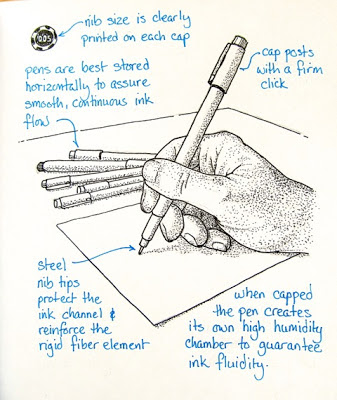 005
nib size is clearly
printed on each cap
cap posts
with a firm
click
pens are best stored
horizontally to assure
smooth, continuous ink
flow
steel
nib tips
protect the
ink channel &
reinforce the
rigid fiber element
when capped
the pen creates
its own high humidity
chamber to guarantee
ink fluidity.